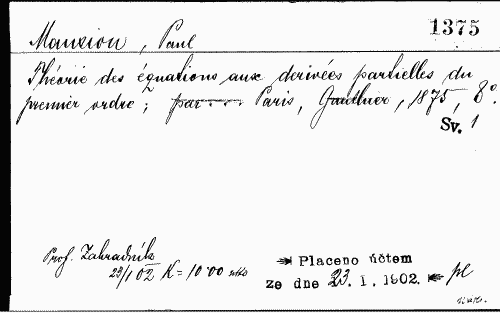 1375
Mansion, Paul
Théorie des équations aux derivées partielles du
premier ordre; par Paris, Gauthier, 1875, 8°.
Sv. 1
Prof. Zahradník
23/1 02 K=10·00
Placeno účtem
ze dne 23. I. 1902.